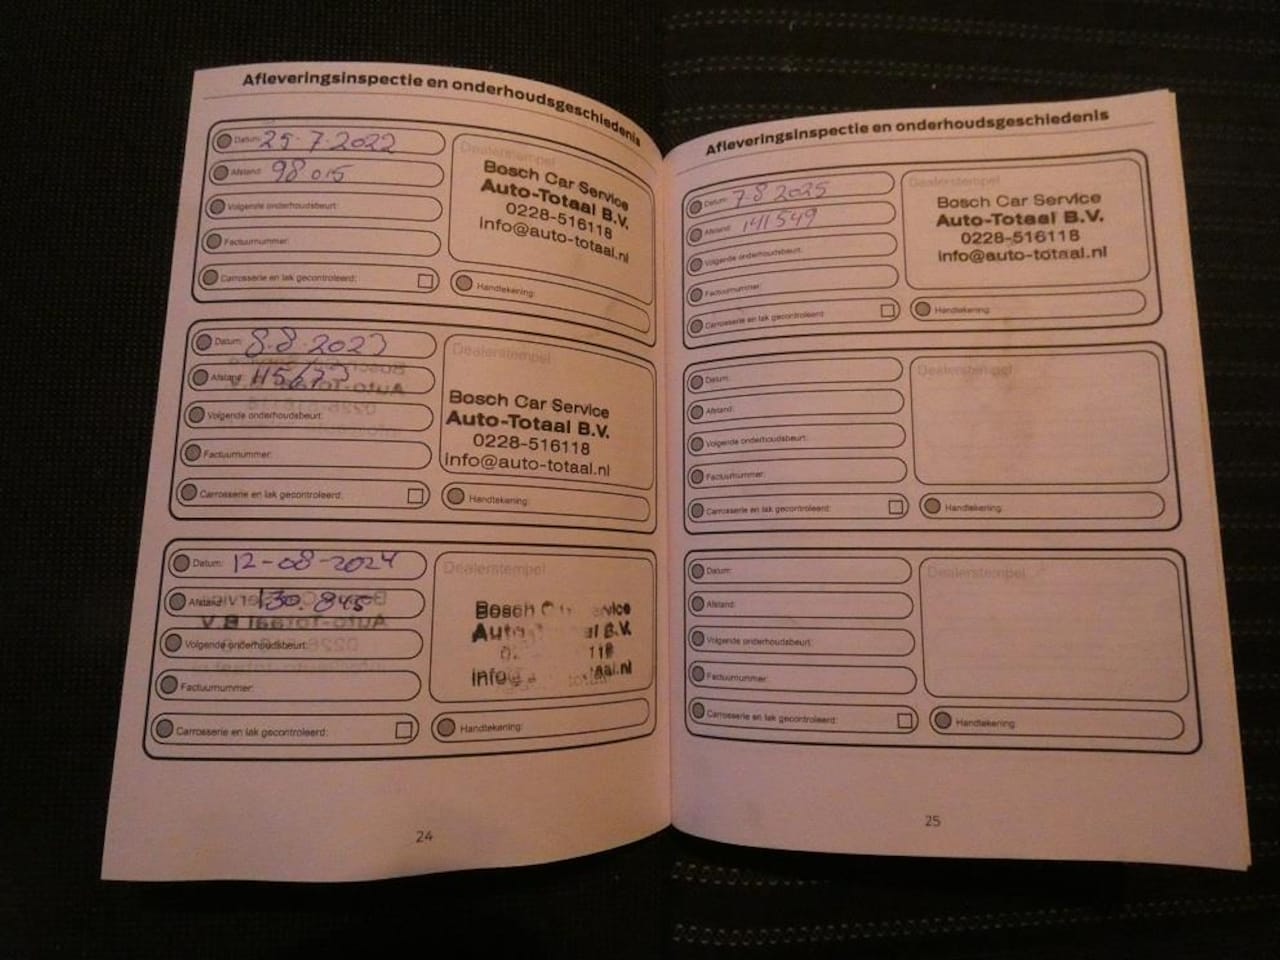 Afleveringsinspectie en onderhoudsgeschiedenis
Datum: 25-7-2022
Afstand: 98 015
Volgende onderhoudsbeurt:
Factuurnummer:
Carrosserie en lak gecontroleerd:
Dealerstempel
Bosch Car Service
Auto-Totaal B.V.
0228-516118
info@auto-totaal.nl
Handtekening:
Datum: 8-8-2023
Afstand:
Volgende onderhoudsbeurt:
Factuurnummer:
Carrosserie en lak gecontroleerd:
Dealerstempel
Bosch Car Service
Auto-Totaal B.V.
0228-516118
info@auto-totaal.nl
Handtekening:
Datum: 12-08-2024
Afstand: 130.845
Volgende onderhoudsbeurt:
Factuurnummer:
Carrosserie en lak gecontroleerd:
Dealerstempel
Bosch
B.V.
Handtekening:
24
Afleveringsinspectie en onderhoudsgeschiedenis
Datum: 7-8-2025
Afstand: 141549
Volgende onderhoudsbeurt:
Factuurnummer:
Carrosserie en lak gecontroleerd:
Dealerstempel
Bosch Car Service
Auto-Totaal B.V.
0228-516118
info@auto-totaal.nl
Handtekening:
Datum:
Afstand:
Volgende onderhoudsbeurt:
Factuurnummer:
Carrosserie en lak gecontroleerd:
Dealerstempel
Handtekening:
Datum:
Afstand:
Volgende onderhoudsbeurt:
Factuurnummer:
Carrosserie en lak gecontroleerd:
Dealerstempel
Handtekening:
25